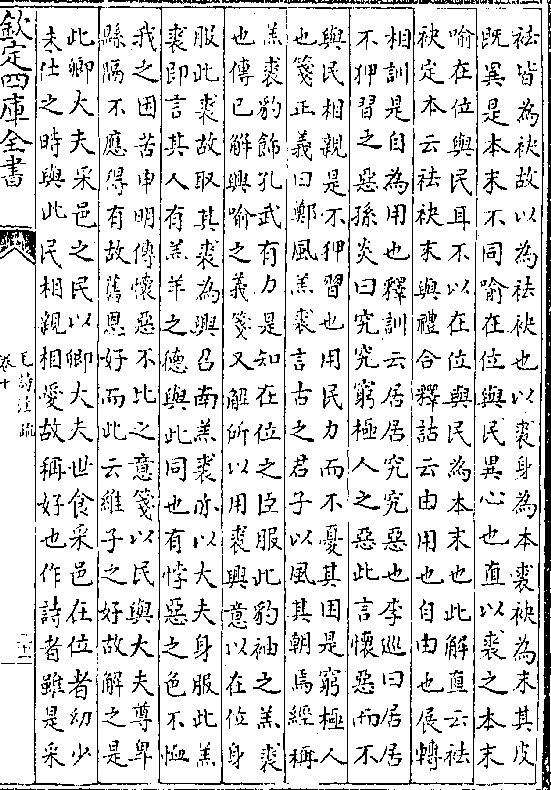 袪皆為袂故以為袪袂也以裘身為本裘袂為末其皮
既異是本末不同喻在位與民異心也直以裘之本末
喻在位與民耳不以在位與民為本末也此解直云袪
袂定本云袪袂末與禮合釋詁云由用也自由也展轉
相訓是自為用也釋訓云居居究究惡也李巡曰居居
不狎習之惡孫炎曰究究窮極人之惡此言懷惡而不
與民相親是不狎習也用民力而不憂其困是窮極人
也箋正義曰鄭風羔裘言古之君子以風其朝焉經稱
羔裘豹飾孔武有力是知在位之臣服此豹袖之羔裘
也傳已解興喻之義箋又解所以用裘興意以在位身
服此裘故取其裘為興召南羔裘亦以大夫身服此羔
裘即言其人有羔羊之德與此同也有悖惡之色不恤
我之困苦申明傳懷惡不比之意箋以民與大夫尊卑
縣隔不應得有故舊恩好而此云維子之好故解之是
此卿大夫采邑之民以卿大夫世食采邑在位者幼少
未仕之時與此民相親相愛故稱好也作詩者雖是采
欽定四庫全書
毛詩注疏
卷十